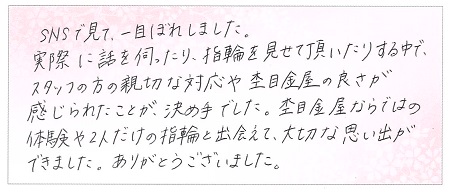 SNSで見て、一目ぼれしました。
実際に話を伺ったり、指輪を見せて頂いたりする中で、
スタッフの方の親切な対応や杢目金屋の良さが
感じられたことが、決め手でした。杢目金屋ならではの
体験や2人だけの指輪と出会えて、大切な思い出が
できました。ありがとうございました。